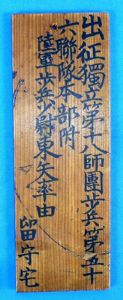 出征獨立第十八師團步兵第五十
六聯隊本部附
陸軍步兵少尉東矢率由
留守宅